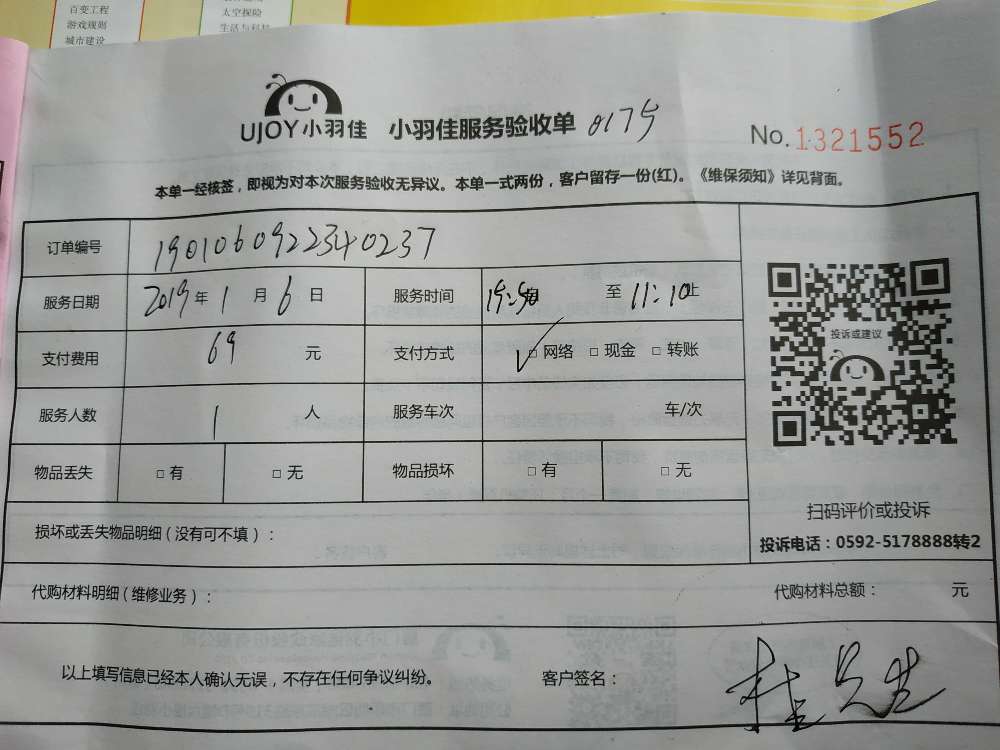 百变工程
游戏规则
城市建设
太空探险
生活与科技
UJOY小羽佳 小羽佳服务验收单 017号
No.1321552
本单一经核签，即视为对本次服务验收无异议。本单一式两份，客户留存一份(红)。《维保须知》详见背面。
订单编号 1901060922340237
服务日期 2019年1月6日 服务时间 至 11:10止
支付费用 69 元 支付方式 ✓□网络 □现金 □转账
服务人数 1 人 服务车次 车/次
物品丢失 □有 □无 物品损坏 □有 □无
投诉或建议
扫码评价或投诉
投诉电话：0592-5178888转2
损坏或丢失物品明细（没有可不填）：
代购材料明细（维修业务）： 代购材料总额： 元
以上填写信息已经本人确认无误，不存在任何争议纠纷。 客户签名： 桂先生